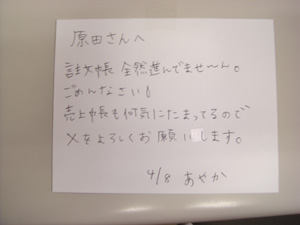 原田さんへ
註文帳 全然進んでませ〜ん。
ごめんなさい!
売上帳も何気にたまってるので
〆をよろしくお願いします。
4/8 あやか